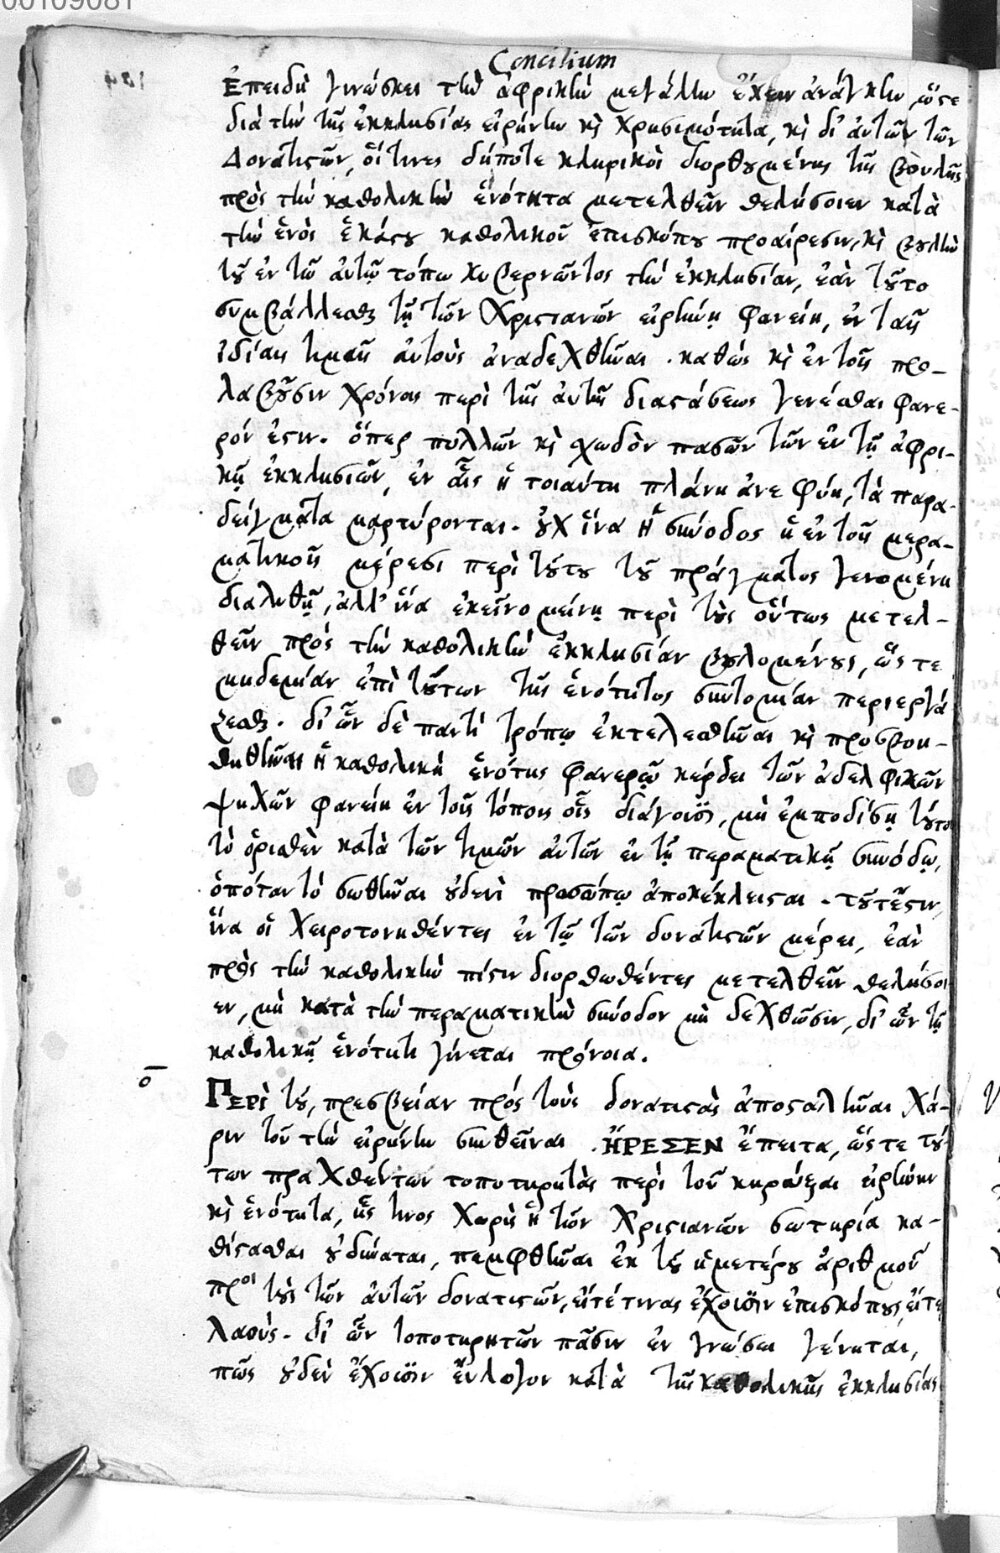 00109081
Concilium
Ἐπειδὴ γινώσκει τὴν ἀφρικὴν μεγάλην ἔχειν ἀνάγκην, ὥστε
διὰ τὴν τῆς ἐκκλησίας εἰρήνην κὶ χρησιμότητα, κὶ δι' αὐτῶν τῶν
Δονατιστῶν, οἵτινες δήποτε κληρικοὶ διορθουμένης τῆς βουλῆς
πρὸς τὴν καθολικὴν ἑνότητα μετελθεῖν θελήσοιεν κατὰ
τὴν ἑνὸς ἑκάστου καθολικοῦ ἐπισκόπου προαίρεσιν, κὶ βουλὴν
τοῦ ἐν τῷ αὐτῷ τόπῳ κυβερνῶντος τὴν ἐκκλησίαν, ἐὰν τοῦτο
συμβάλλεσθαι τῇ τῶν Χριστιανῶν εἰρήνῃ φανείη, ἐν ταῖς
ἰδίαις τιμαῖς αὐτοὺς ἀναδεχθῆναι. καθὼς κὶ ἐν τοῖς προ-
λαβοῦσιν χρόνοις περὶ τῆς αὐτῆς διαστάσεως γενέσθαι φανε-
ρόν ἐστιν. ὅπερ πολλῶν κὶ σχεδὸν πασῶν τῶν ἐν τῇ ἀφρι-
κῇ ἐκκλησιῶν, ἐν αἷς ἡ τοιαύτη πλάνη ἀνεφύη, τὰ παρα-
δείγματα μαρτύρονται. οὐχ ἵνα ἡ σύνοδος ἡ ἐν τοῖς περα-
ματικοῖς μέρεσι περὶ τούτου τοῦ πράγματος γενομένη
διαλυθῇ, ἀλλ' ἵνα ἐκεῖνο μείνῃ περὶ τοὺς οὕτως μετελ-
θεῖν πρὸς τὴν καθολικὴν ἐκκλησίαν βουλομένους, ὥστε
μηδεμίαν ἐπὶ τούτων τῆς ἑνότητος συντομίαν περιεργά
ζεσθαι. δι' ὧν δὲ παντὶ τρόπῳ ἐκτελεσθῆναι κὶ προσβοη-
θηθῆναι ἡ καθολικὴ ἑνότης φανερῷ κέρδει τῶν ἀδελφικῶν
ψυχῶν φανείη ἐν τοῖς τόποις οἷς διάγοιεν, μὴ ἐμποδίσῃ τοῦτο
τὸ ὁρισθὲν κατὰ τῶν τιμῶν αὐτῶν ἐν τῇ περαματικῇ συνόδῳ,
ὁπόταν τὸ σωθῆναι οὐδενὶ προσώπῳ ἀποκέκλεισται. τουτέστιν,
ἵνα οἱ χειροτονηθέντες ἐν τῷ τῶν δονατιστῶν μέρει, ἐὰν
πρὸς τὴν καθολικὴν πίστιν διορθωθέντες μετελθεῖν θελήσοι
εν, μὴ κατὰ τὴν περαματικὴν σύνοδον μὴ δεχθῶσιν, δι' ὧν τῇ
καθολικῇ ἑνότητι γίνεται πρόνοια.
ο
ΠΕΡῚ τοῦ, πρεσβείαν πρὸς τοὺς δονατιστὰς ἀποσταλῆναι χά-
ριν τοῦ τὴν εἰρήνην συνθεῖναι. ἬΡΕΣΕΝ ἔπειτα, ὥστε τού-
των πραχθέντων τοποτηρητὰς περὶ τοῦ κηρύξαι εἰρήνην
κὶ ἑνότητα, ἧς τινος χωρὶς ἡ τῶν Χριστιανῶν σωτηρία κα-
θίστασθαι οὐ δύναται, πεμφθῆναι ἐκ τοῦ ἡμετέρου ἀριθμοῦ
πρὸς τοὺς τῶν αὐτῶν δονατιστῶν, εἴτε τινας ἔχοιεν ἐπισκόπους, εἴτε
λαούς. δι' ὧν τοποτηρητῶν πᾶσιν ἐν γνώσει γένηται,
πῶς οὐδὲν ἔχοιεν εὔλογον κατὰ τῆς καθολικῆς ἐκκλησίας